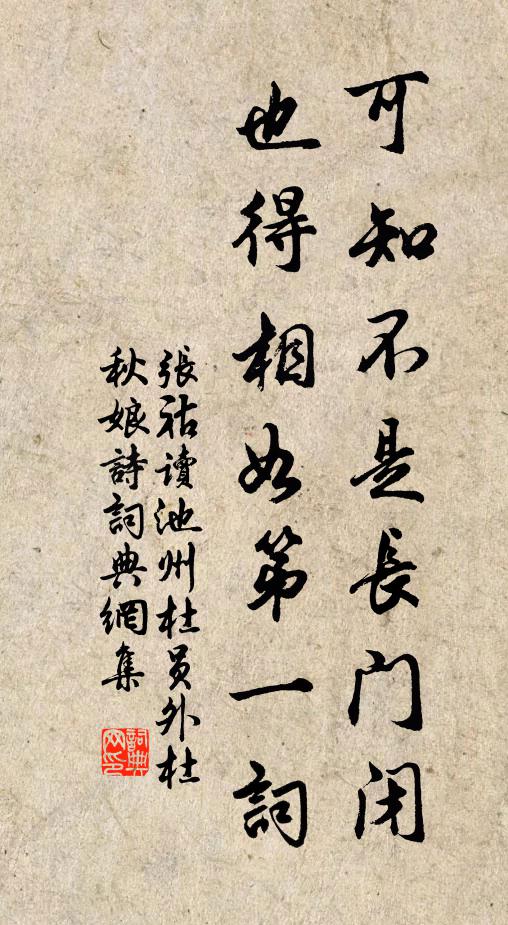 可知不是長門閉
也得相如第一詞
張祜讀池州杜員外杜
秋娘詩詞典網集
詞典網印